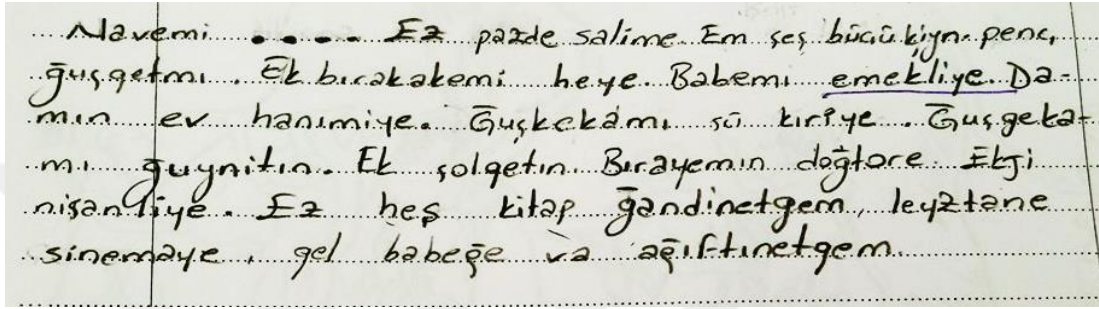 Navemi ..... Ez pazde salime. Em şeş bücükiyn. penc,
ğuşgetmı. Ek bırakakemi heye. Babemı emekliye. Da-
mın ev hanımiye. Ğuşkekamı sü kiriye. Ğuşgeka-
mı ğuynitin. Ek şolgetın. Bırayemın doğtore. Ekji
nişanliye. Ez heş kitap ğandinetgem, leyztane
sinemaye, gel babeğe va ağiftınetgem.